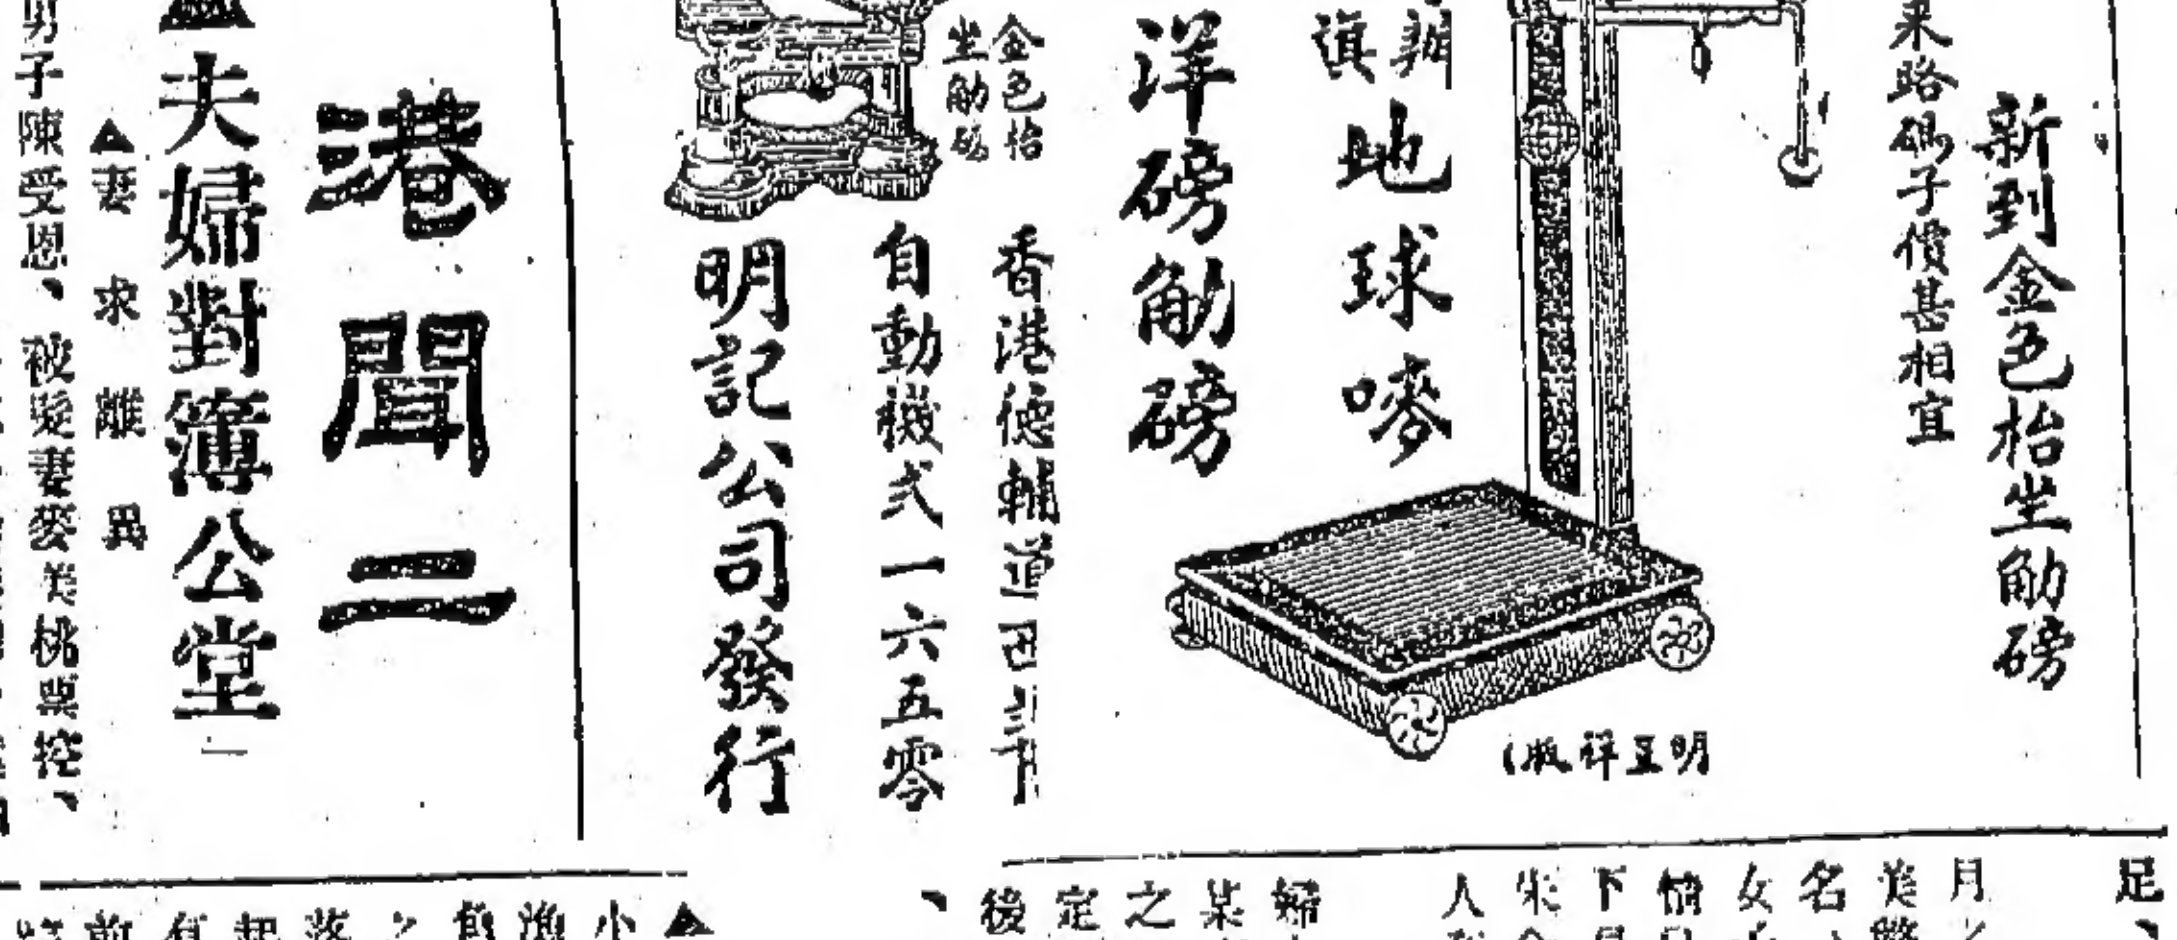 新到金色枱坐㔕磅
來路碼子價甚相宜
明呈祥版
地球嘜
洋磅㔕磅
金色枱
坐㔕磅
香港德輔道西
自動機式一六五零
明記公司發行
港聞二
夫婦對簿公堂
▲妻求離異
男子陳受恩、被髮妻麥美桃票控、
足、
月
美
名
女
情
下
朱
人
婦
某
之
定
後
▲小漁船之落起有前